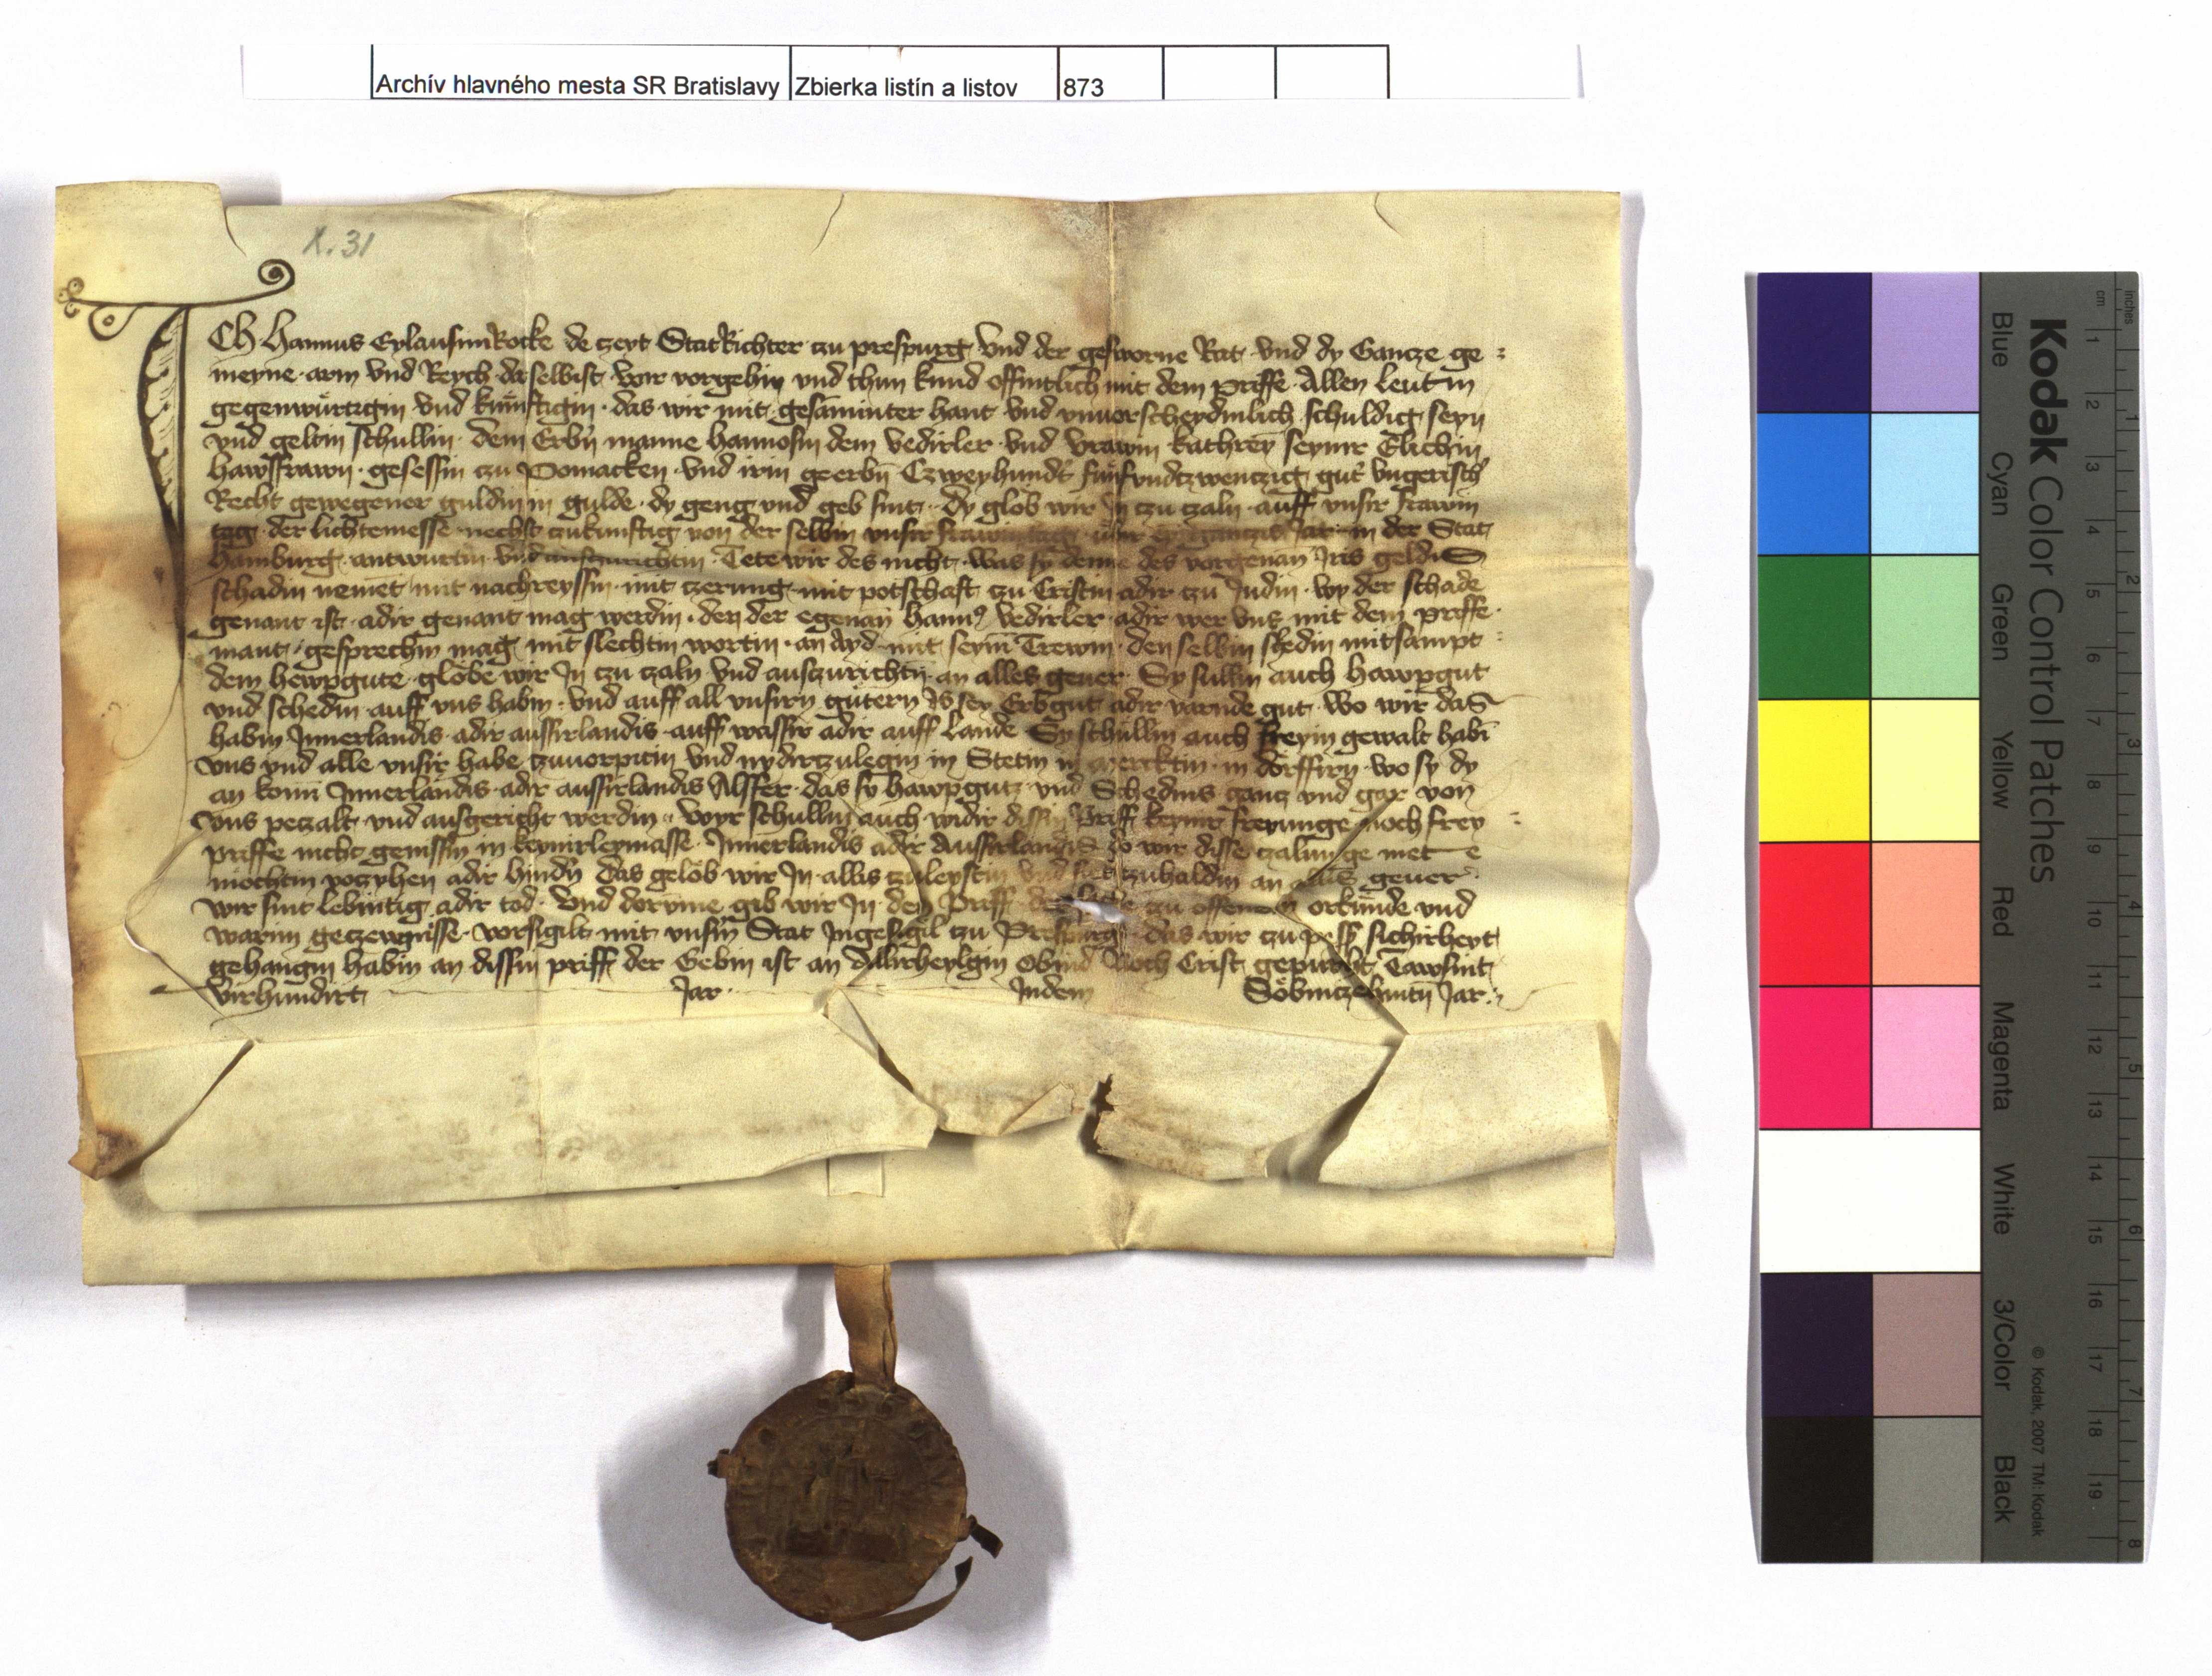 Archív hlavného mesta SR Bratislavy Zbierka listín a listov 873
X. 31
ICh Hannus Eylausimrocke de czeyt StatRichter czu prespurg vnd der gesworne Rat vnd dy Gancze ge
meyne arm vnd Reych da selbist vor vorgehin vnd thun kund offintlich mit dem priffe Allen leutin
gegenwürtigin vnd künftigin das wir mit gesaminter hant vnd vnuorscheydinlich schuldig seyn
vnd geltin schullin dem Erbn manne hannosin dem vedirler vnd vrawin kathrey seynir Elichin
hawsfrawn gesessin czu Pomacken vnd irin geerbn Czweyhundt fünfvndczwenczig gut vngerisch
Recht gewegener guldin in gulde dy geng vnd geb sint dy glob wir In czu czaln auff vnsir frawin
tag der lichtemesse nechst czukunftig von der selbin vnsir frawin tag Jar in der Stat
hamburg antwurtin vnd Tete wir des nicht Was sy denne des vorgenan Iris geldis
schadin nemet mit nachreyssin mit czerung mit potschaft czu Cristin adir czu Judin wy der schade
genant ist adir genant mag werdin den der egenan hanns vedirler adir wer vns mit dem priffe
mant gesprechin mag mit slechtin wortin an Ayd mit seym Trewin den selbin schedin mitsampt
dem hewpgute globe wir In czu czaln vnd ausczurichtn an alles geuer Sy sullin auch hawpgut
vnd schedin auff vns habin vnd auff all vnsirn gütern Is sey Erbgut adir varnde gut wo wir das
habin Innerlandis adir aussirlandis auff wassir adir auff Lande Sy schullin auch freyin gewalt habi
vns vnd alle vnsir habe czuuorpitin vnd nydirczulegin in Stetin in mercktin in dorffirn wo sy dy
an komn Innerlandis adir aussirlandis Alsfer das sy hawpgutz vnd Schedins gancz vnd gar von
vns peczalt vnd ausgericht werdin wyr schullin auch widir dissin Priff keynir freyunge noch frey
priffe nicht genissin in keynirleymasse Innerlandis adir Aussirlandis do wir disse czalunge mete
möchtin voczyhen adir hindn das gelob wir In allis czuleystin vnd stet czuhaldin an allis geuer
wir sint lebintig adir tod Vnd dorvme gib wir In den Priff czu offenen orkunde vnd
warim geczewgnisse vorsigilt mit vnsirm Stat Ingesigil czu Prespurg das wir czu sichirheyt
gehangin habin an dissin priff der Gebin ist an Allirheylgin obind Noch Crist gepurtht Tawsint
virhundirt Jar Indem Söbinczehintn Jar
Kodak Color Control Patches
Blue Cyan Green Yellow Red Magenta White 3/Color Black
© Kodak, 2007 TM: Kodak
inches 1 2 3 4 5 6 7 8
cm 1 2 3 4 5 6 7 8 9 10 11 12 13 14 15 16 17 18 19